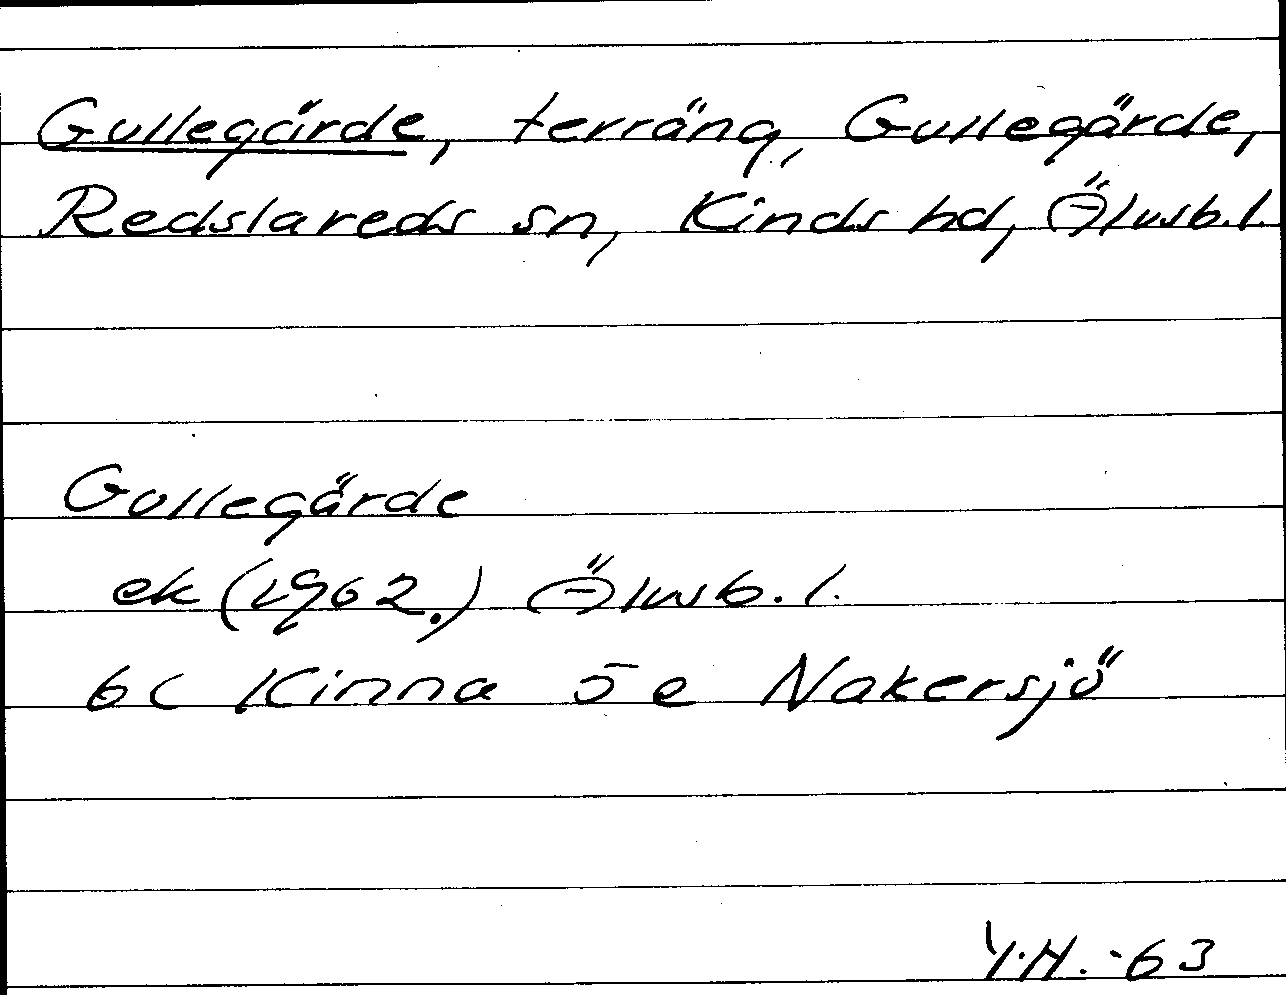 Gullegärde, terräng, Gullegärde,
Redslareds sn, Kinds hd, Älvsb.l.
Gullegärde
ek (1962.) Älvsb.l.
6C Kinna 5e Nakersjö
Y.H. -63